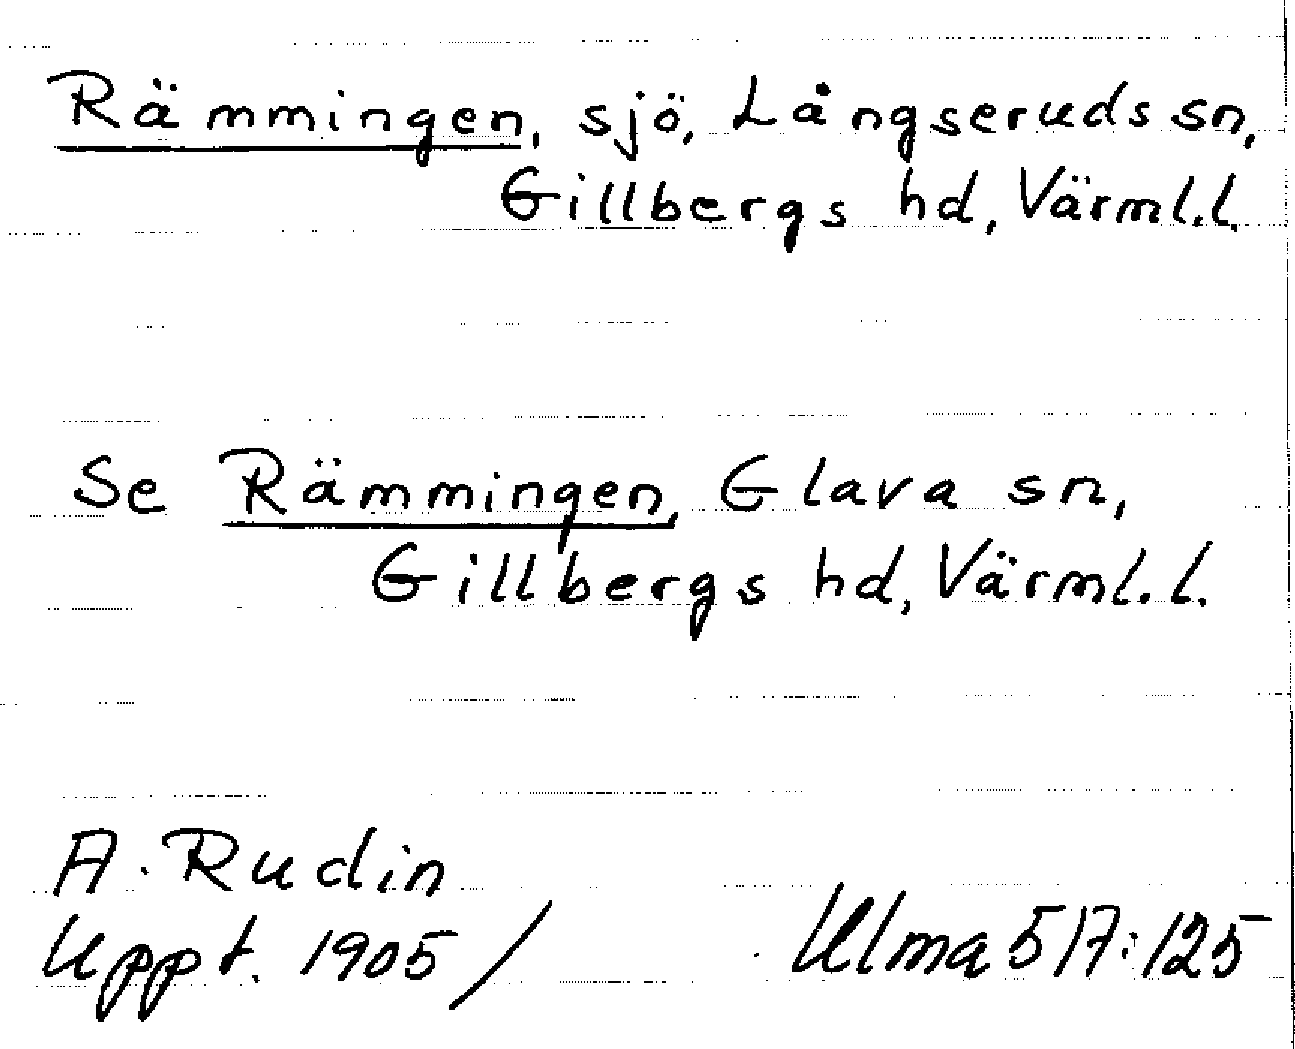 Rämmingen, sjö, Långseruds sn,
Gillbergs hd, Värml.l.
Se Rämmingen, Glava sn,
Gillbergs hd, Värml.l.
A. Rudin
Uppt. 1905 / Ulma 517:125